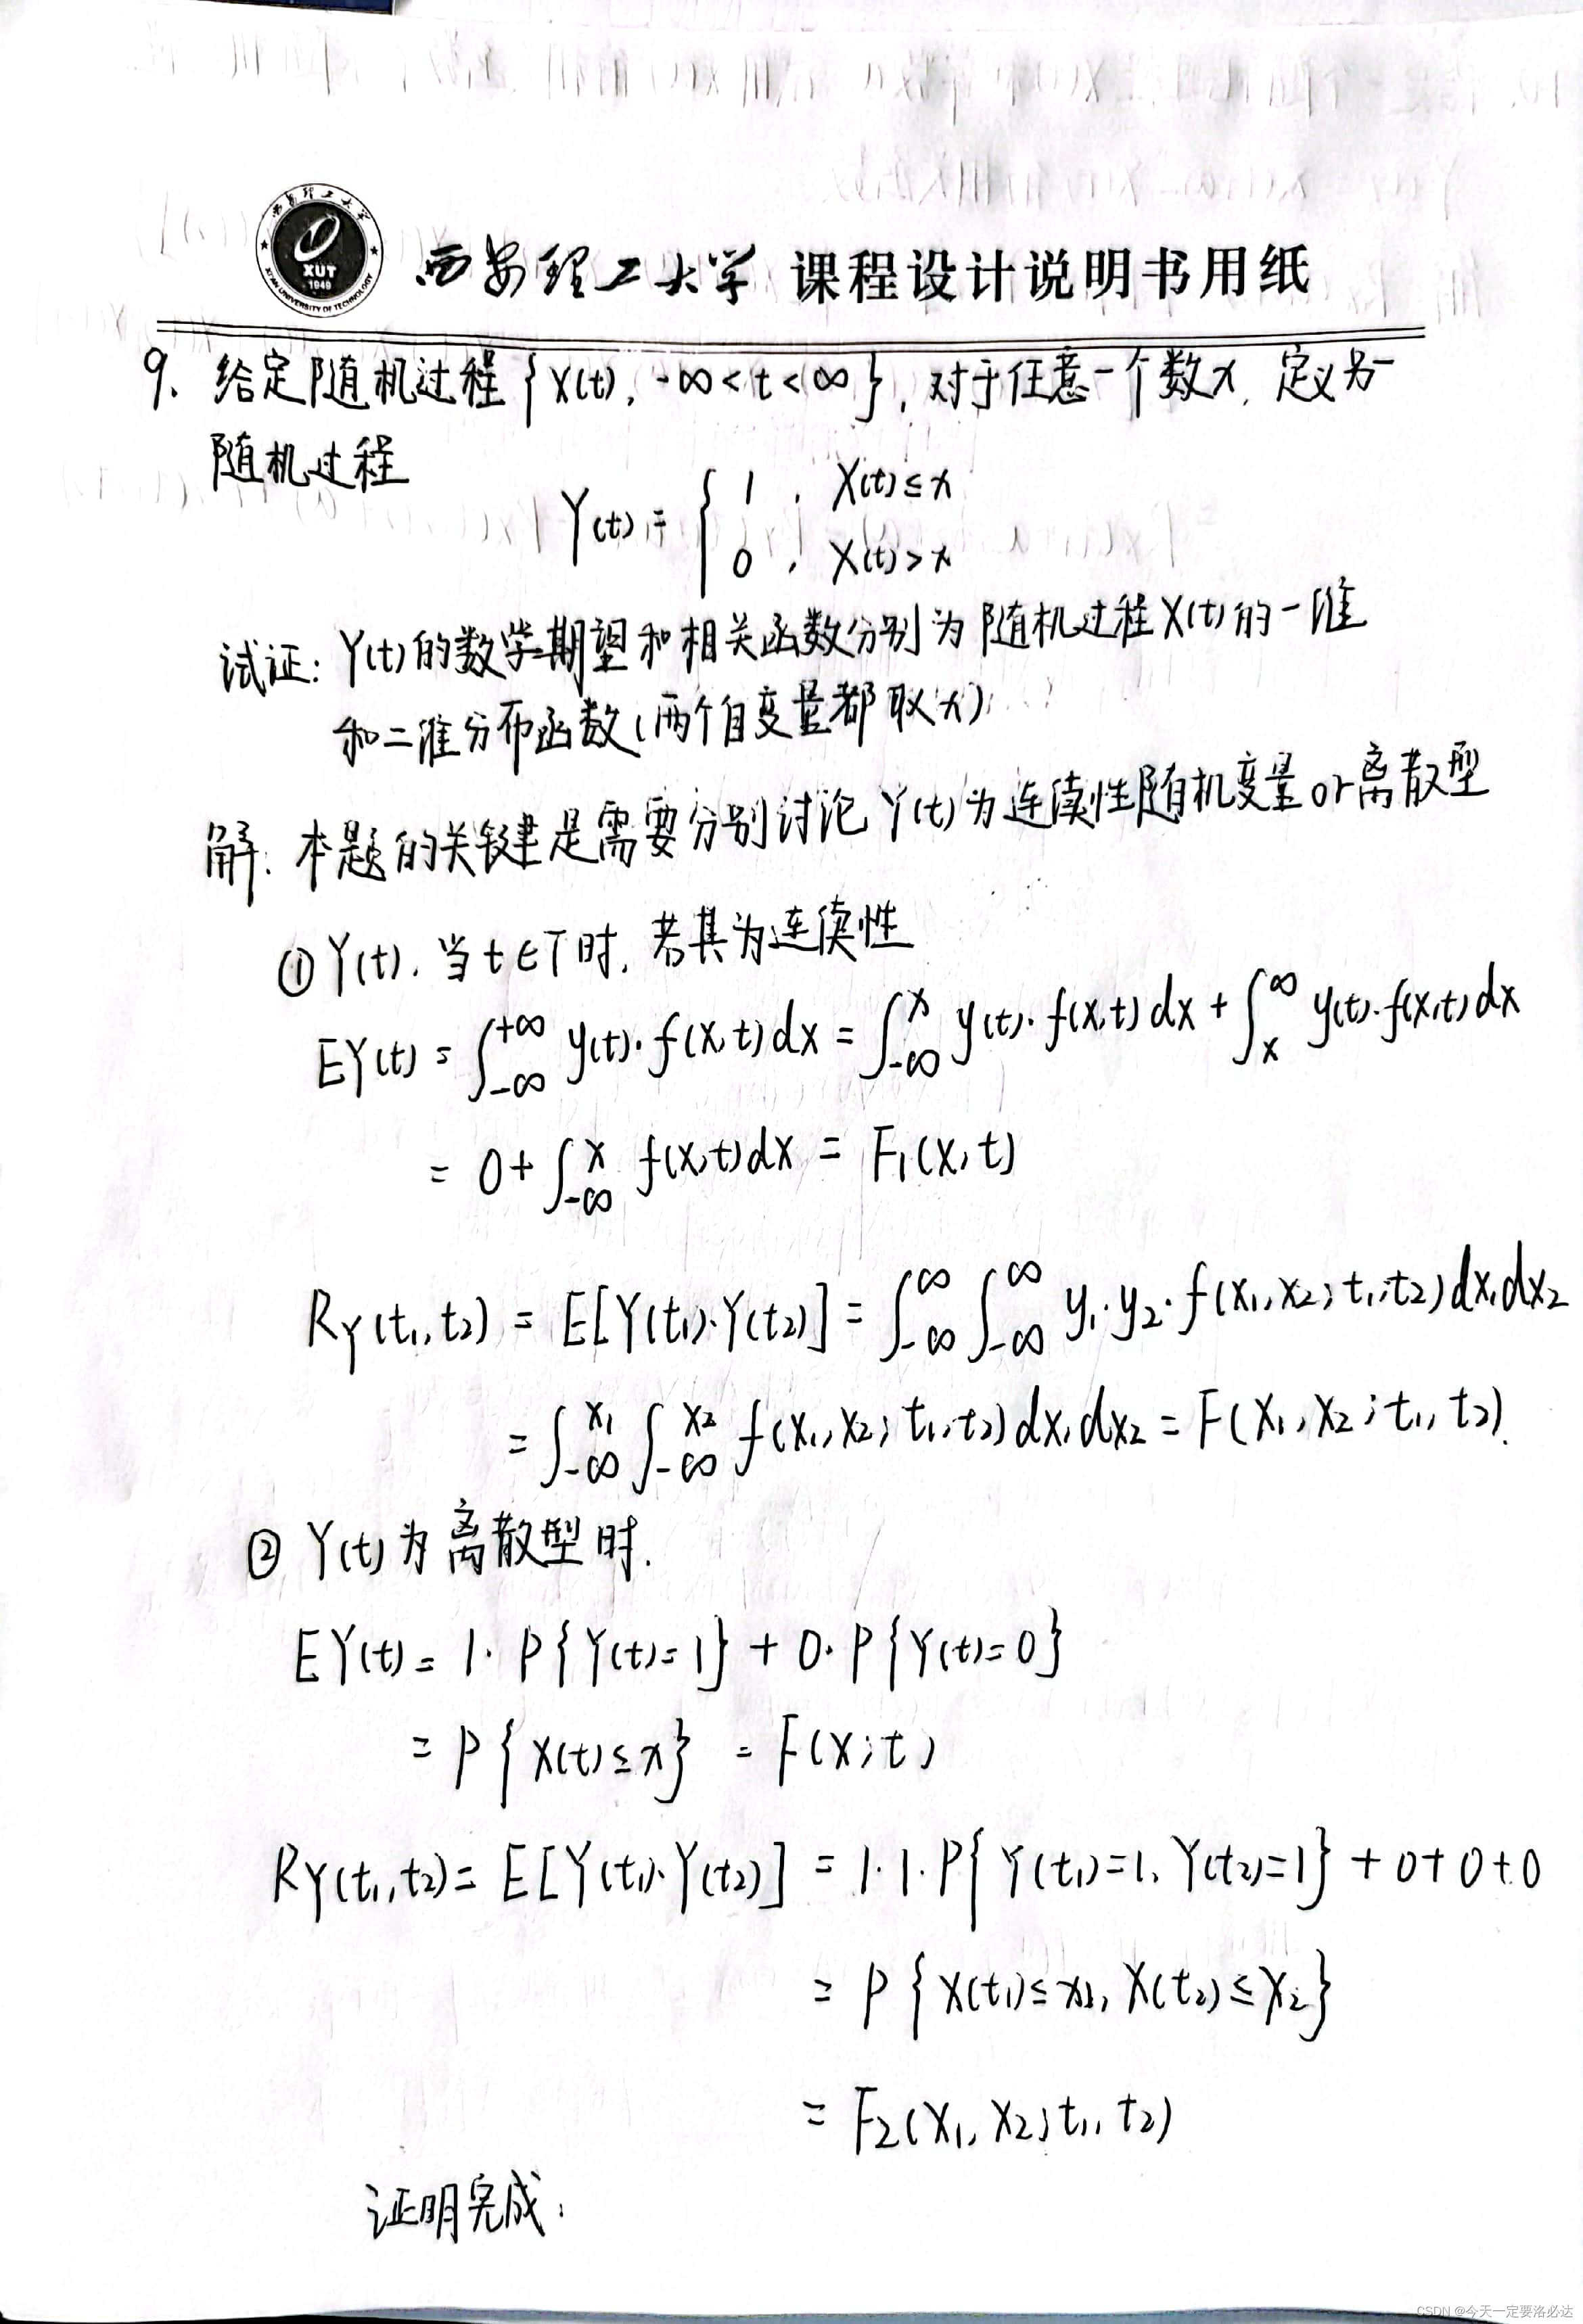 西安理工大学 课程设计说明书用纸
XUT
1949
XI'AN UNIVERSITY OF TECHNOLOGY
9. 给定随机过程{X(t), -∞<t<∞}, 对于任意一个数x, 定义另一
随机过程
Y(t) = { 1 , X(t)≤x
0 , X(t)>x
试证: Y(t)的数学期望和相关函数分别为随机过程X(t)的一维
和二维分布函数(两个自变量都取x)
解: 本题的关键是需要分别讨论Y(t)为连续性随机变量or离散型
① Y(t), 当t∈T时, 若其为连续性
EY(t) = ∫_{-∞}^{+∞} y(t)·f(x,t)dx = ∫_{-∞}^{x} y(t)·f(x,t)dx + ∫_{x}^{∞} y(t)·f(x,t)dx
= 0 + ∫_{-∞}^{x} f(x,t)dx = F₁(x,t)
R_Y(t₁,t₂) = E[Y(t₁)·Y(t₂)] = ∫_{-∞}^{∞} ∫_{-∞}^{∞} y₁·y₂·f(x₁,x₂;t₁,t₂)dx₁dx₂
= ∫_{-∞}^{x₁} ∫_{-∞}^{x₂} f(x₁,x₂;t₁,t₂)dx₁dx₂ = F(x₁,x₂;t₁,t₂).
② Y(t)为离散型时.
EY(t) = 1·P{Y(t)=1} + 0·P{Y(t)=0}
= P{X(t)≤x} = F(x;t)
R_Y(t₁,t₂) = E[Y(t₁)·Y(t₂)] = 1·1·P{Y(t₁)=1, Y(t₂)=1} + 0+0+0
= P{X(t₁)≤x₁, X(t₂)≤x₂}
= F₂(x₁,x₂;t₁,t₂)
证明完成.
CSDN @今天一定要洛必达